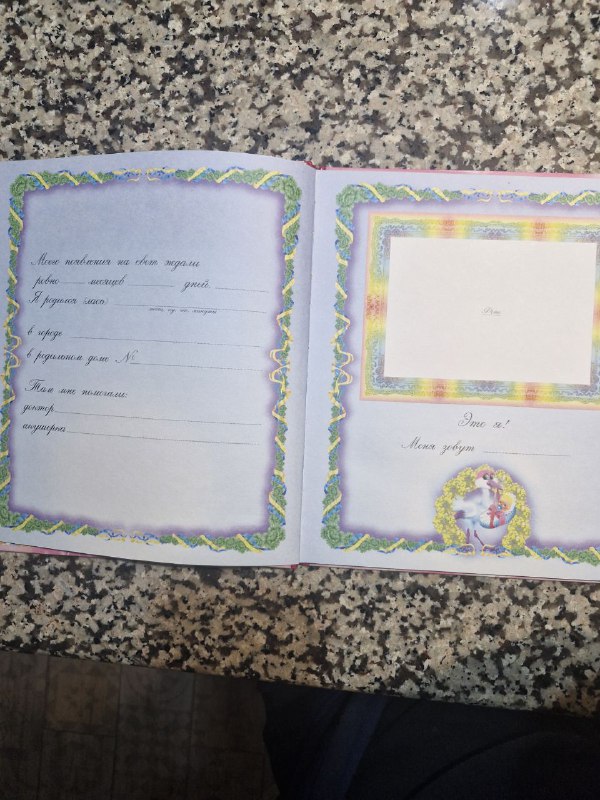 Моего появления на свет ждали
ровно ____ месяцев ____ дней. ____
Я родился (лась) ____
в городе ____
в родильном доме № ____
Там мне помогали:
доктор ____
акушерка ____
Фото
Это я!
Меня зовут ____